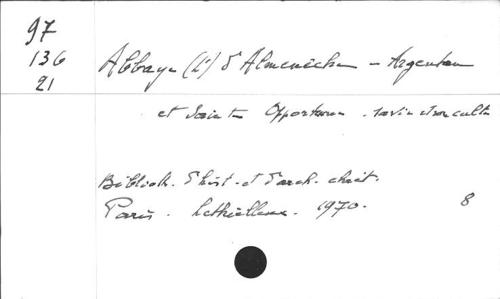 97
136
21
Abbaye (L') d'Almenèches - Argentan
et Sainte Opportune. sa vie et son culte
Biblioth. d'hist. et d'arch. chrét.
Paris. Lethielleux. 1970.
8